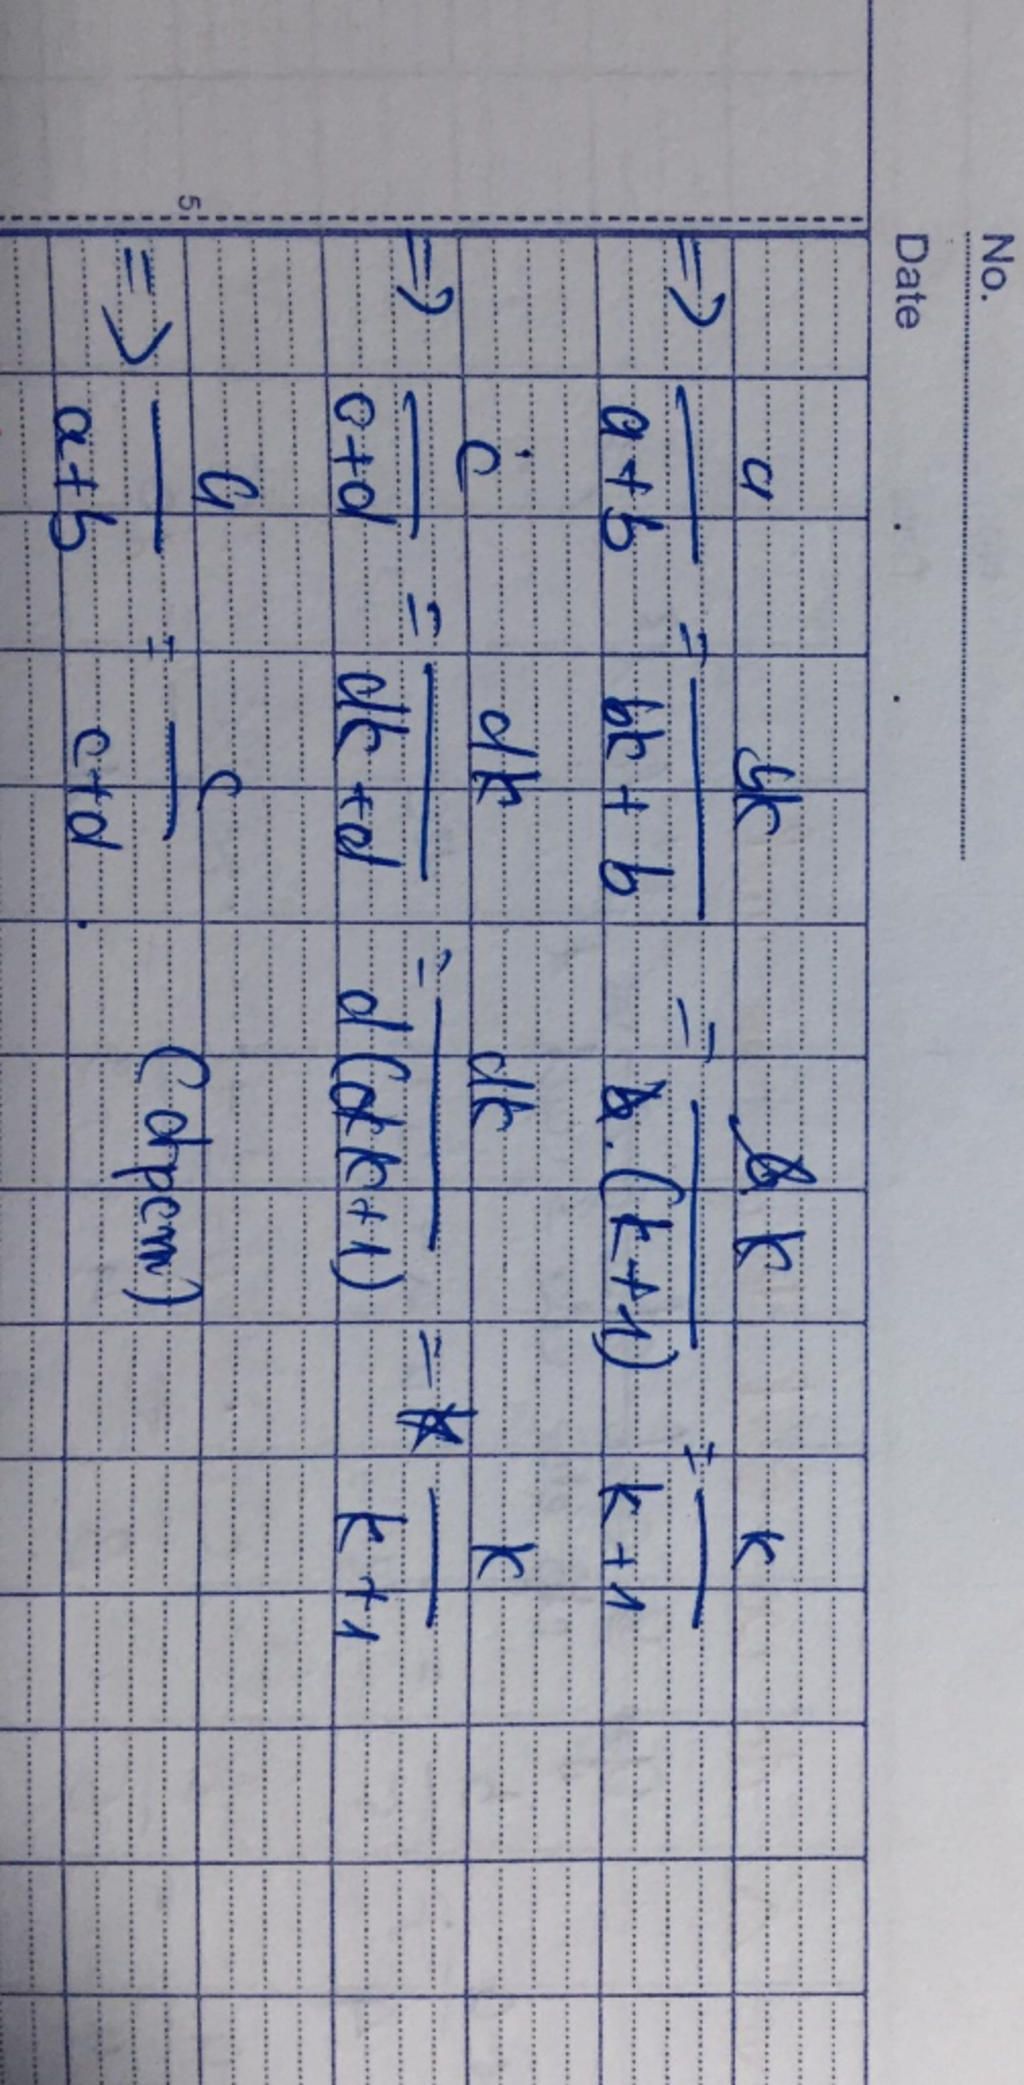 No.
Date
=> a/(a+b) = bk/(bk+b) = b.k/(b.(k+1)) = k/(k+1)
=> c/(c+d) = dk/(dk+d) = dk/(d(dk+1)) = k/(k+1)
5
=> a/(a+b) = c/(c+d). (đpcm)